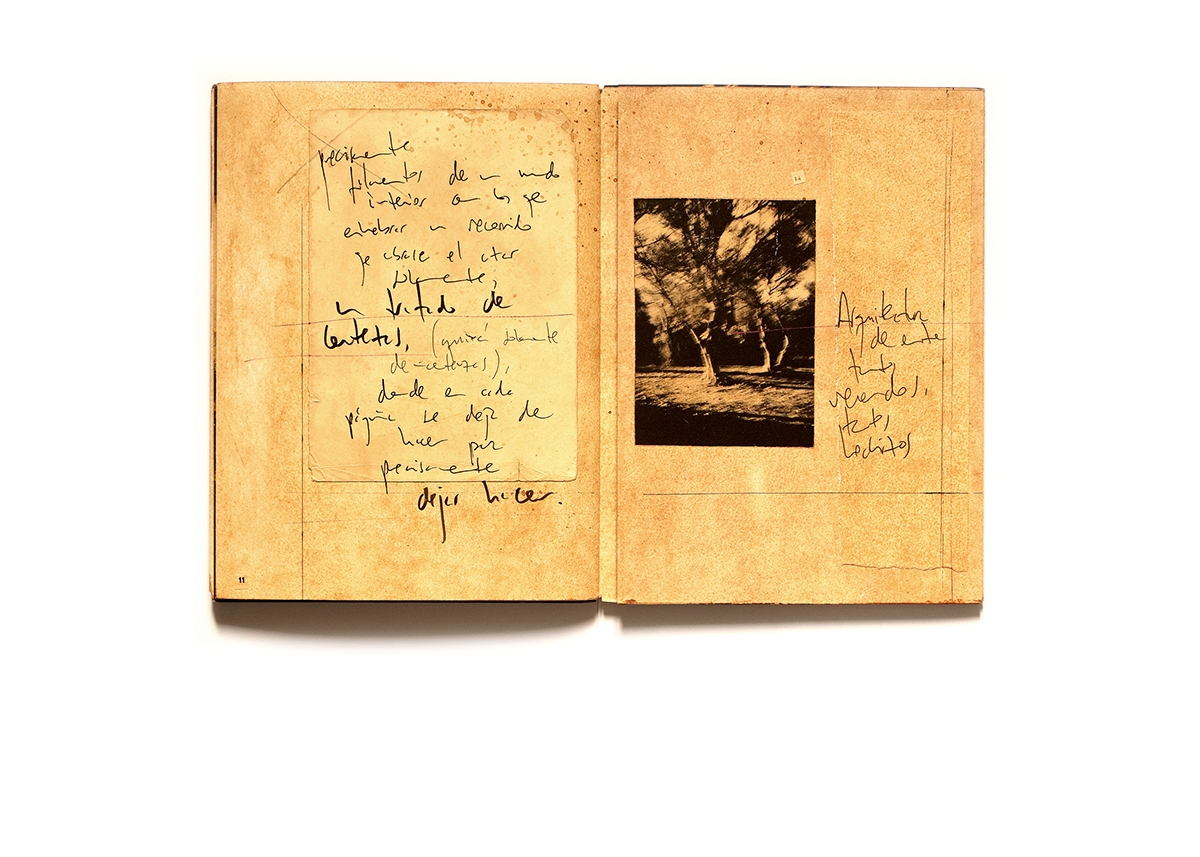 precisamente
filamentos de un mundo
interior con los que
enhebrar un recorrido
que abrace el estar
solamente,
un tratado de
certezas, (quizá solamente
de certezas),
donde en cada
página se deja de
hacer por
precisamente
dejar hacer.
11
Arquitectura
de entre
tantos
recuerdos,
tantos